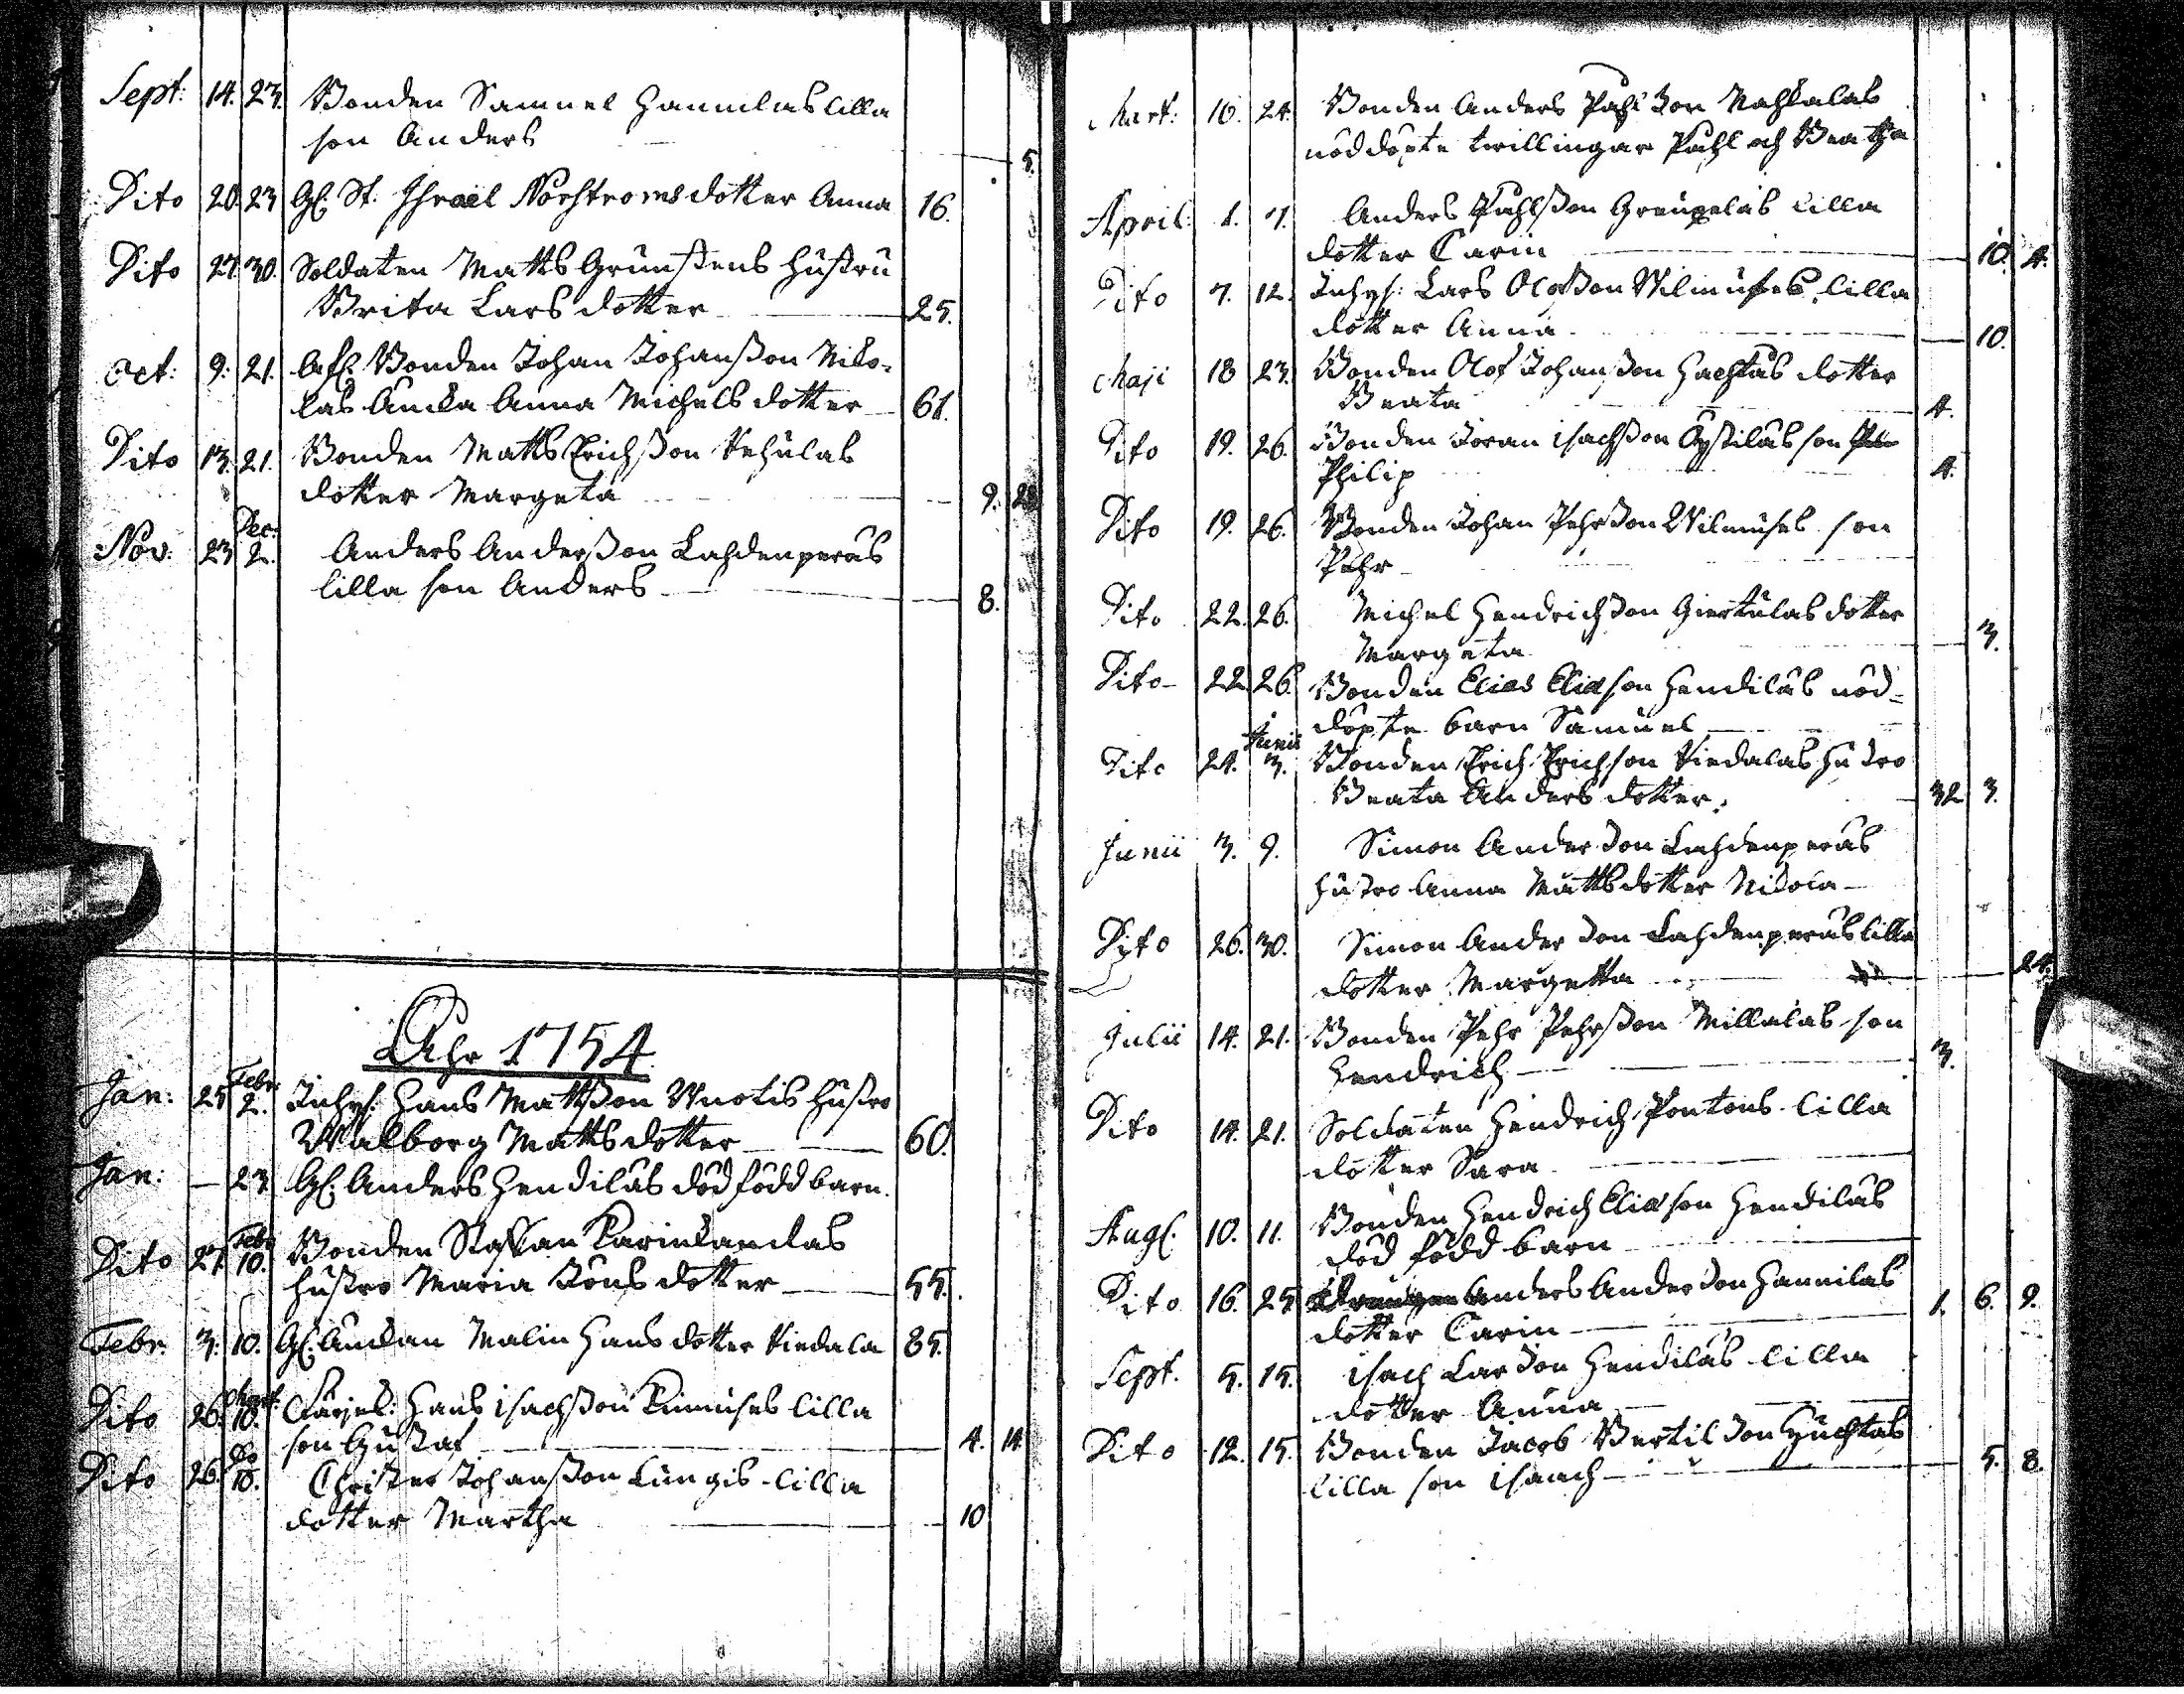 Sept: 14. 23. Bonden Samuel Hannilas lilla
son Anders 5.
Dito 20. 23 Gl. St. Israël Norstroms dotter Anna 16.
Dito 27. 30. Soldaten Matts Grunstens hustru
Brita Lars dotter 25.
Oct: 9. 21. Bonden Johan Johansson Niko-
las Anna Michels dotter 61.
Dito 13. 21. Bonden Matts Erichsson
dotter Margeta 9. 28
Dec:
Nov: 23 2. Anders Andersson Lahdenperäs
lilla son Anders 8.
Åhr 1754
Febr:
Jan: 25 2. Inhys: Hans Mattsson hustro
Walborg Matts dotter 60.
Jan: — 23 Gl. Anders Hendiläs död född barn.
Febr
Dito 27. 10. Bonden Staffan
hustro Maria Jöns dotter 55.
Febr. 3. 10. Gl. Malin Hans dotter Viedala 85.
Mart:
Dito 26. 10. Hans Isachsson lilla
son Gustaf 4. 14
Do
Dito 26. 10. Christer Johansson lilla
dotter Martha 10
Mart: 10. 24. Bonden Anders Påhlson
nöd döpte twillingar Påhl och Beatha
April: 1. 7. Anders Påhlsson lilla
dotter Carin 10. 4.
Dito 7. 12. Inhys: Lars Olofsson lilla
dotter Anna 10.
Maji 18 23. Bonden Olof Johansson dotter
Beata 4.
Dito 19. 26. Bonden Isachsson son
Philip 4.
Dito 19. 26. Bonden Johan Pehrsson son
Pehr
Dito 22. 26. Michel Hendrichsson dotter
Margeta 3.
Dito 22 26. Bonden Elias Eliasson Hendiläs nöd-
döpte barn Samuel
Junii
Dito 24. 3. Bonden Erich Erichson Viedalas hustro
Beata Anders dotter. 32 3.
Junii 3. 9. Simon Andersson Lahdenperäs
hustro Anna Matts dotter
Dito 26. 30. Simon Andersson Lahdenperäs lilla
dotter Margetta 24.
Julii 14. 21. Bonden Pehr Pehrsson Millalas son
Hendrich 3.
Dito 14. 21. Soldaten Hendrich Pontons lilla
dotter Sara
Aug. 10. 11. Bonden Hendrich Eliasson Hendiläs
död född barn
Dito 16. 25 Anders Andersson Hannilas
dotter Carin 1. 6. 9.
Sept. 5. 15. Isach Larsson Hendiläs lilla
dotter Anna
Dito 12. 15. Bonden Jacob Bertilsson
lilla son Isaach 5. 8.